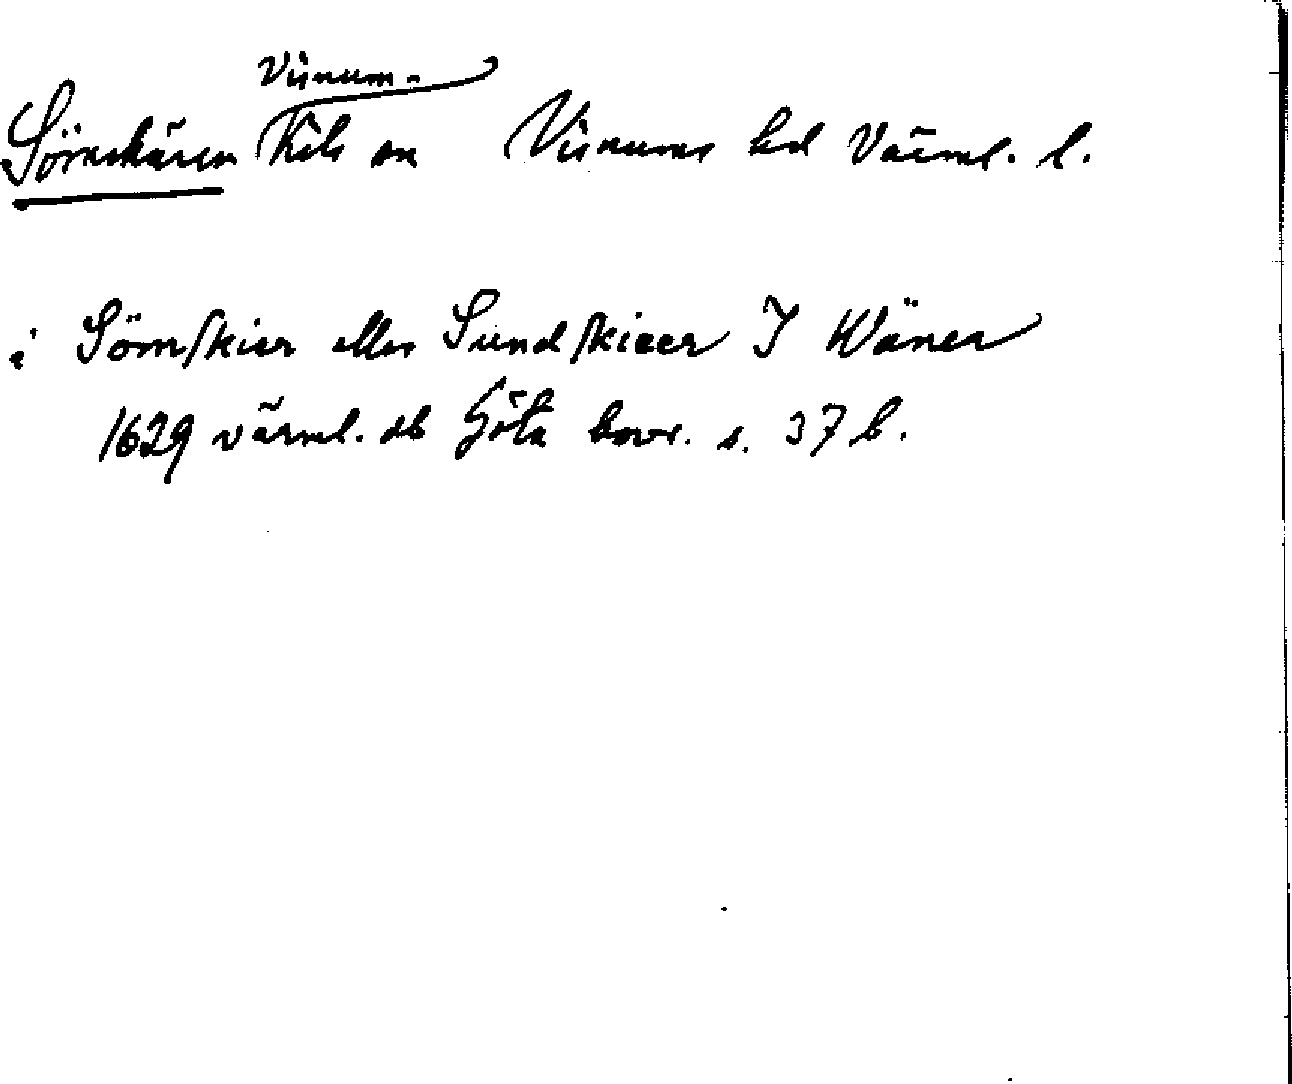 Viinum-
Sömskären Kils sn Visnums hd Värml. l.
i Sömskier eller Sundskieer I Wäner
1629 värml. db Göta hovr. s. 37 b.